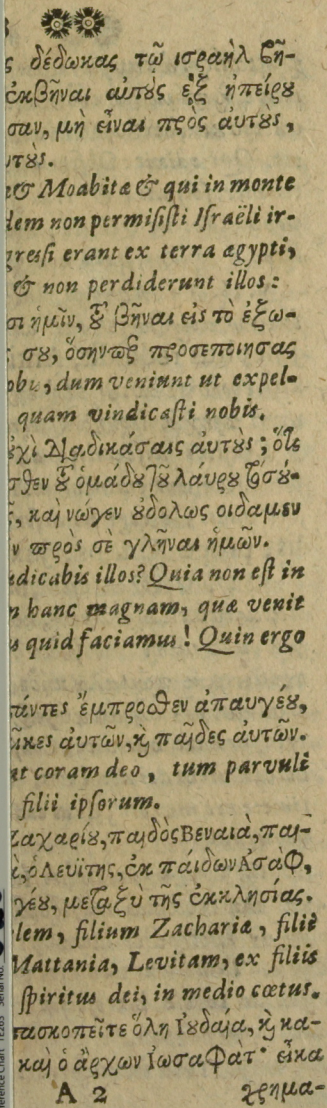 ς δέδωκας τῷ ισραὴλ βῆ-
ἐκβῆναι αὐτοὺς ἐξ ἠπείρου
σαν, μὴ εἶναι πρὸς αὐτοὺς,
υτοὺς.
& Moabitæ & qui in monte
dem non permisisti Israëli ir-
gressi erant ex terra ægypti,
& non perdiderunt illos:
σι ἡμῖν, τοῦ βῆναι εἰς τὸ ἐξω-
σου, προσεποιησας
dum veniunt ut expel-
quam vindicasti nobis.
αὐτοὺς;
ὁμάδου λάυρου
καὶ νώγεν οὐδολως οιδαμεν
ν πρὸς σὲ γλῆναι ἡμῶν.
dicabis illos? Quia non est in
m hanc magnam, quæ venit
s quid faciamus! Quin ergo
πάντες ἔμπροσθεν ἀπαυγέου,
αὐτῶν, καὶ παῖδες αὐτῶν.
at coram deo, tum parvuli
filii ipsorum.
Ζαχαρίου, παιδὸς Βεναιὰ, παι-
ὁ Λευΐτης, ἐκ πάιδων Ἀσὰφ,
γέου, μεταξὺ τῆς ἐκκλησίας.
lem, filium Zachariæ, filii
Mattania, Levitam, ex filiis
spiritus dei, in medio cœtus.
πασκοπεῖτε ὅλη Ἰουδαία, καὶ κα-
καὶ ὁ ἄρχων Ἰωσαφὰτ· εἶκα
A 2 χρημα-